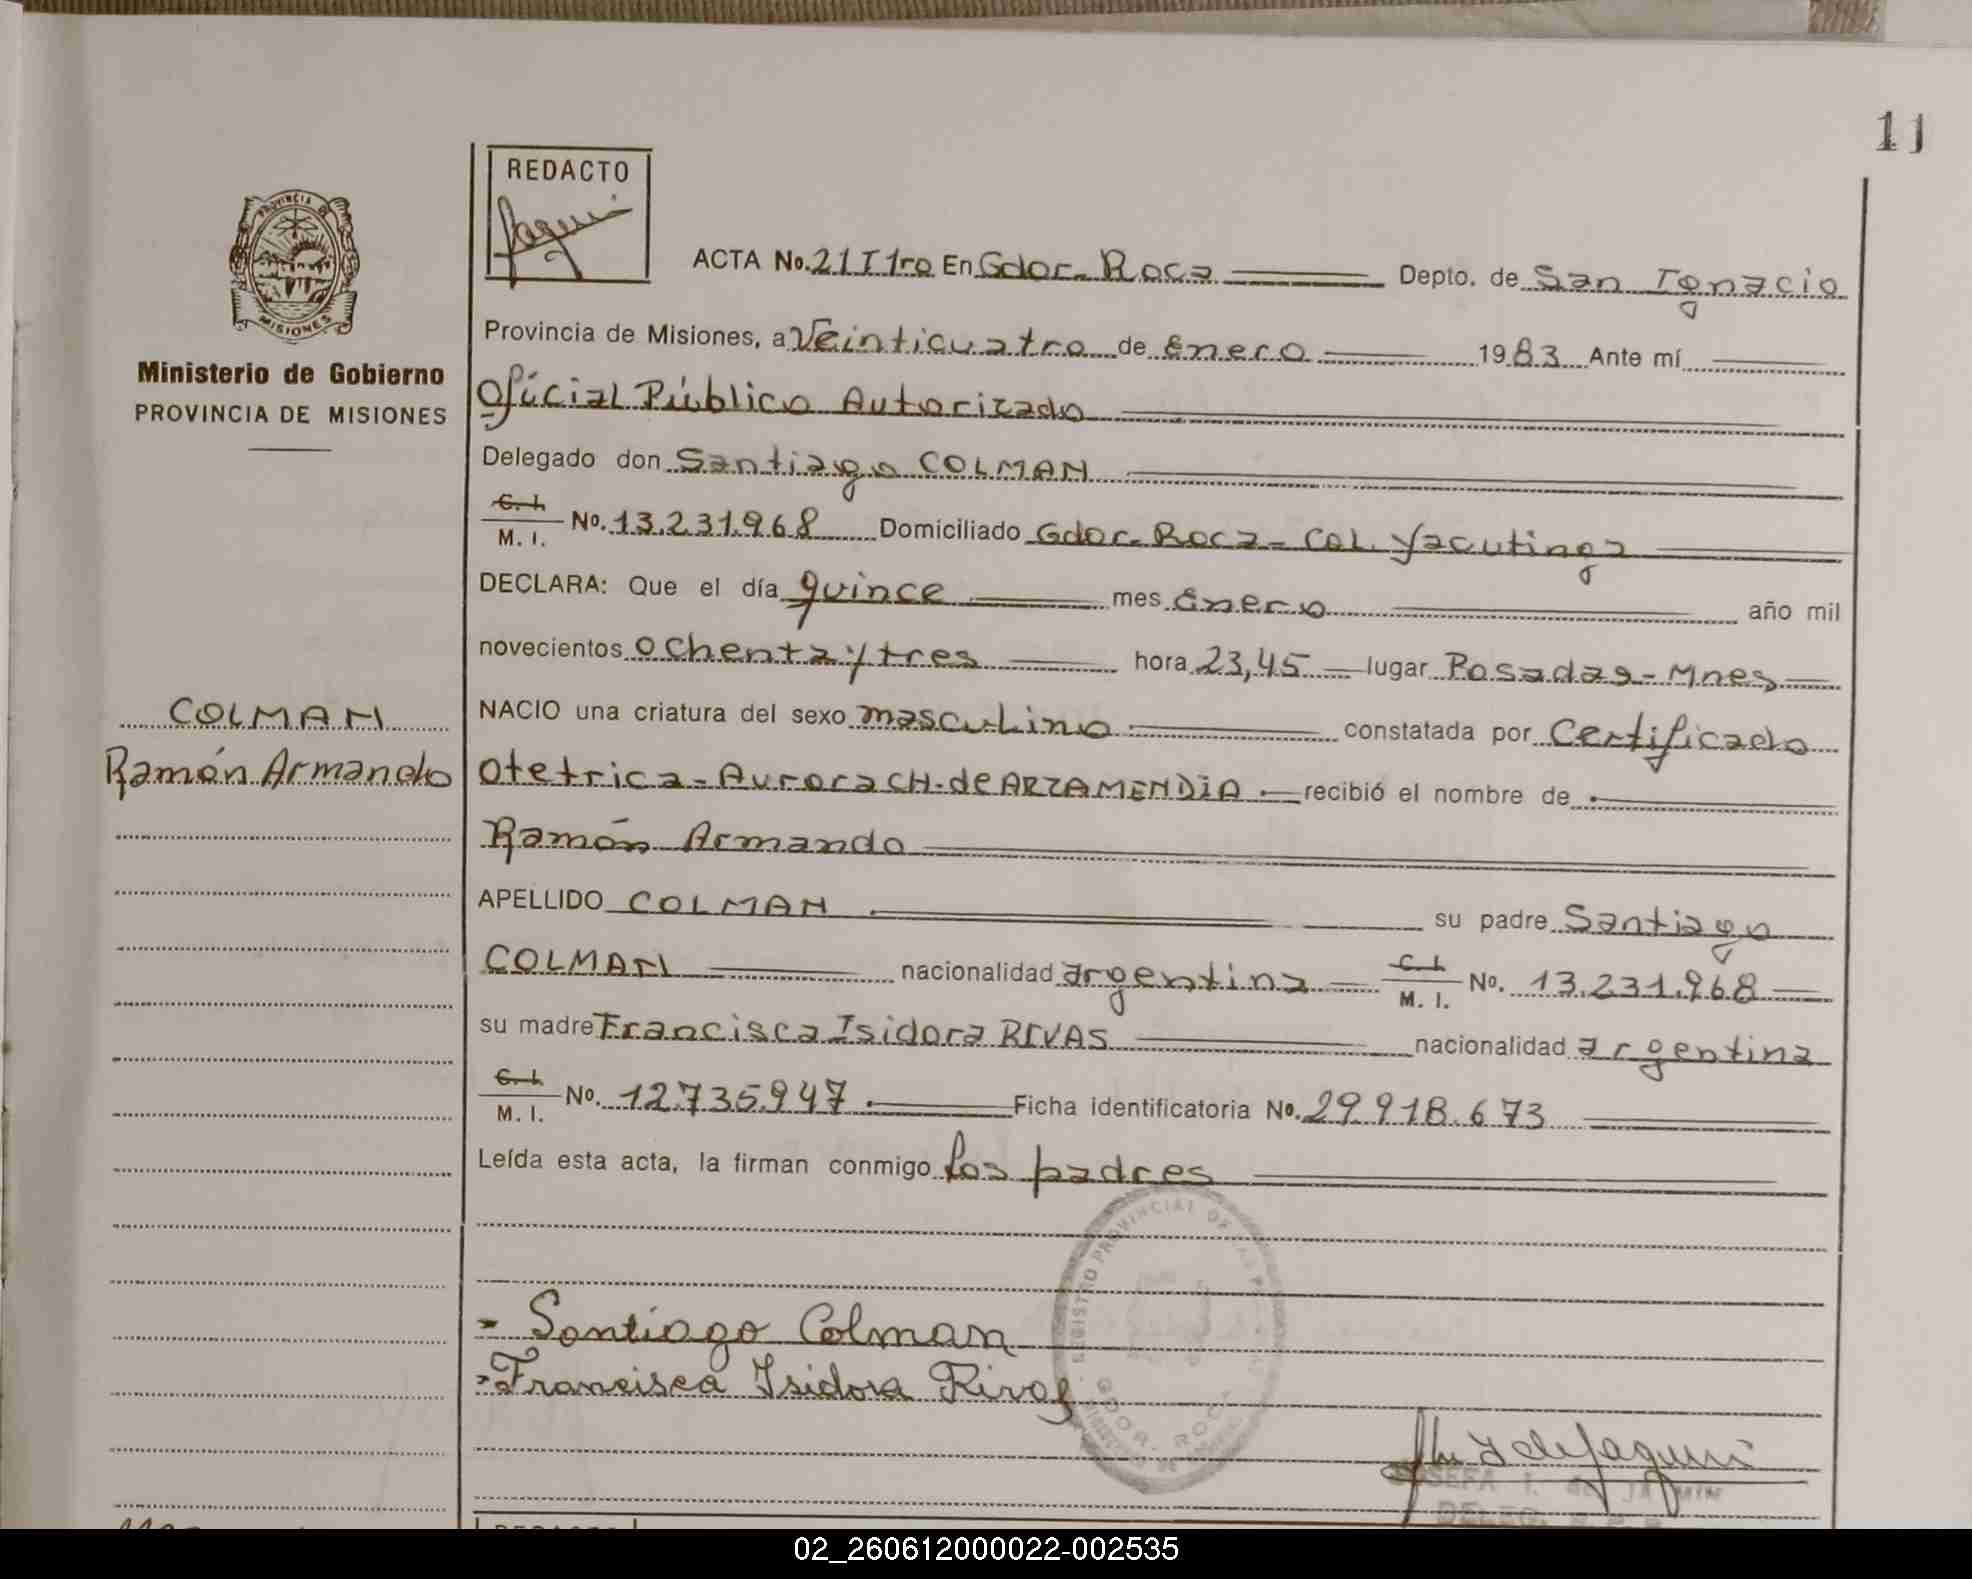 11
REDACTO
PROVINCIA DE
MISIONES
Ministerio de Gobierno
PROVINCIA DE MISIONES
ACTA No. 21 T 1ro En Gdor. Roca Depto. de San Ignacio
Provincia de Misiones, a Veinticuatro de Enero 1983 Ante mí
Oficial Público Autorizado
Delegado don Santiago COLMAN
C. I.
M. I. No. 13.231.968 Domiciliado Gdor. Roca - Col. Yacutinga
DECLARA: Que el día quince mes Enero año mil
novecientos Ochenta y tres hora 23,45 lugar Posadas - Mnes
NACIO una criatura del sexo masculino constatada por Certificado
COLMAN
Ramón Armando
Otetrica - Aurora CH. de ARZAMENDIA. recibió el nombre de
Ramón Armando
APELLIDO COLMAN su padre Santiago
COLMAN nacionalidad argentina C. I.
M. I. No. 13.231.968
su madre Francisca Isidora RIVAS nacionalidad argentina
C. I.
M. I. No. 12.735.947 Ficha identificatoria No. 29.918.673
Leída esta acta, la firman conmigo los padres
REGISTRO PROVINCIAL DE LAS
GDOR. ROCA
- Santiago Colman
- Francisca Isidora Rivas
02_260612000022-002535